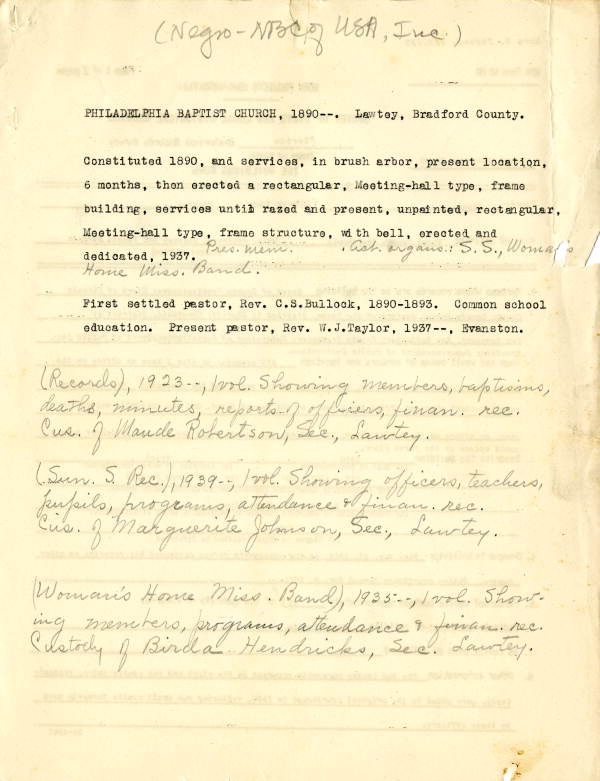 (Negro - NBC of USA, Inc.)
PHILADELPHIA BAPTIST CHURCH, 1890--. Lawtey, Bradford County.
Constituted 1890, and services, in brush arbor, present location,
6 months, then erected a rectangular, Meeting-hall type, frame
building, services until razed and present, unpainted, rectangular,
Meeting-hall type, frame structure, with bell, erected and
dedicated, 1937. Pres. mem. . Act. organs.: S. S., Woman's
Home Miss. Band.
First settled pastor, Rev. C.S.Bullock, 1890-1893. Common school
education. Present pastor, Rev. W.J.Taylor, 1937--, Evanston.
(Records), 1923--, 1 vol. Showing members, baptisms,
deaths, minutes, reports of officers, finan. rec.
Cus. of Maude Robertson, Sec., Lawtey.
(Sun. S. Rec.), 1939--, 1 vol. Showing officers, teachers,
pupils, programs, attendance & finan. rec.
Cus. of Marguerite Johnson, Sec., Lawtey.
(Woman's Home Miss. Band), 1935--, 1 vol. Show-
ing members, programs, attendance & finan. rec.
Custody of Birda Hendricks, Sec. Lawtey.